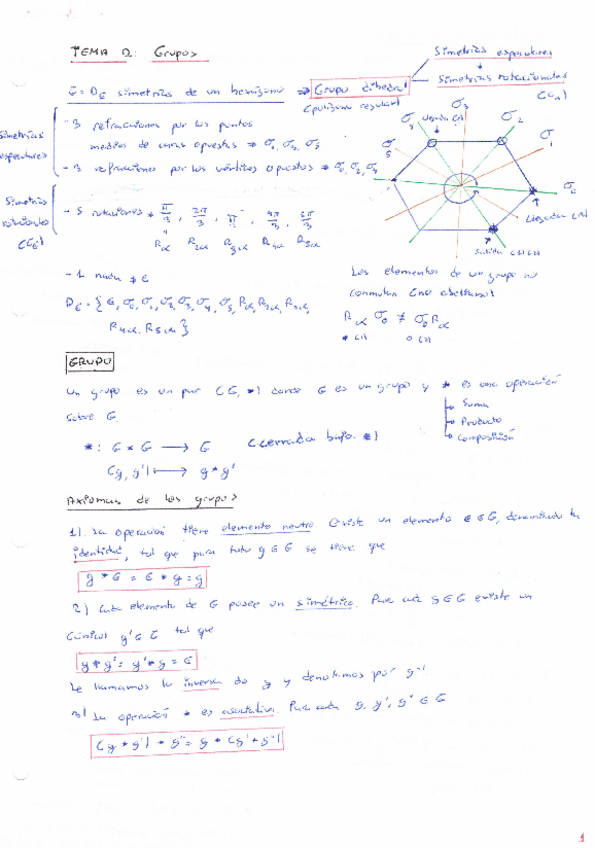 TEMA 2: Grupos
Simetrías especulares
↓
G = D₆ simetrías de un hexágono ⇒ Grupo dihedral
Simetrías rotacionales
(polígono regular)
(Cₙ)
Simetrías especulares
- 3 refracciones por los puntos
medios de caras opuestas ⇒ σ₁, σ₃, σ₅
- 3 refracciones por los vértices opuestos ⇒ σ₀, σ₂, σ₄
Simetrías rotacionales (C₆)
- 5 rotaciones π/3, 2π/3, π, 4π/3, 5π/3
Rα R2α R3α R4α R5α
σ₃
σ₂
σ₁
σ₀
σ₄
σ₅
Llegada (2)
Llegada (1)
Salida (1) (2)
- 1 nada
D₆ = { e, σ₀, σ₁, σ₂, σ₃, σ₄, σ₅, Rα, R2α, R3α,
R4α, R5α }
Los elementos de un grupo no
conmutan (no abeliano)
Rα σ₀ ≠ σ₀ Rα
GRUPO
Un grupo es un par (G, *) donde G es un grupo y * es una operación
sobre G.
Suma
Producto
Composición
*: G × G → G (cerrada bajo *)
(g, g') ⟼ g * g'
Axiomas de los grupos
1). La operación tiene elemento neutro. Existe un elemento e ∈ G, denominado la
identidad, tal que para todo g ∈ G se tiene que
g * e = e * g = g
2) Cada elemento de G posee un simétrico. Para cada g ∈ G existe un
(único) g' ∈ G tal que
g * g' = g' * g = e
Le llamamos la inversa de g y denotamos por g⁻¹
3) La operación * es asociativa. Para cada g, g', g'' ∈ G
(g * g') * g'' = g * (g' * g'')
1